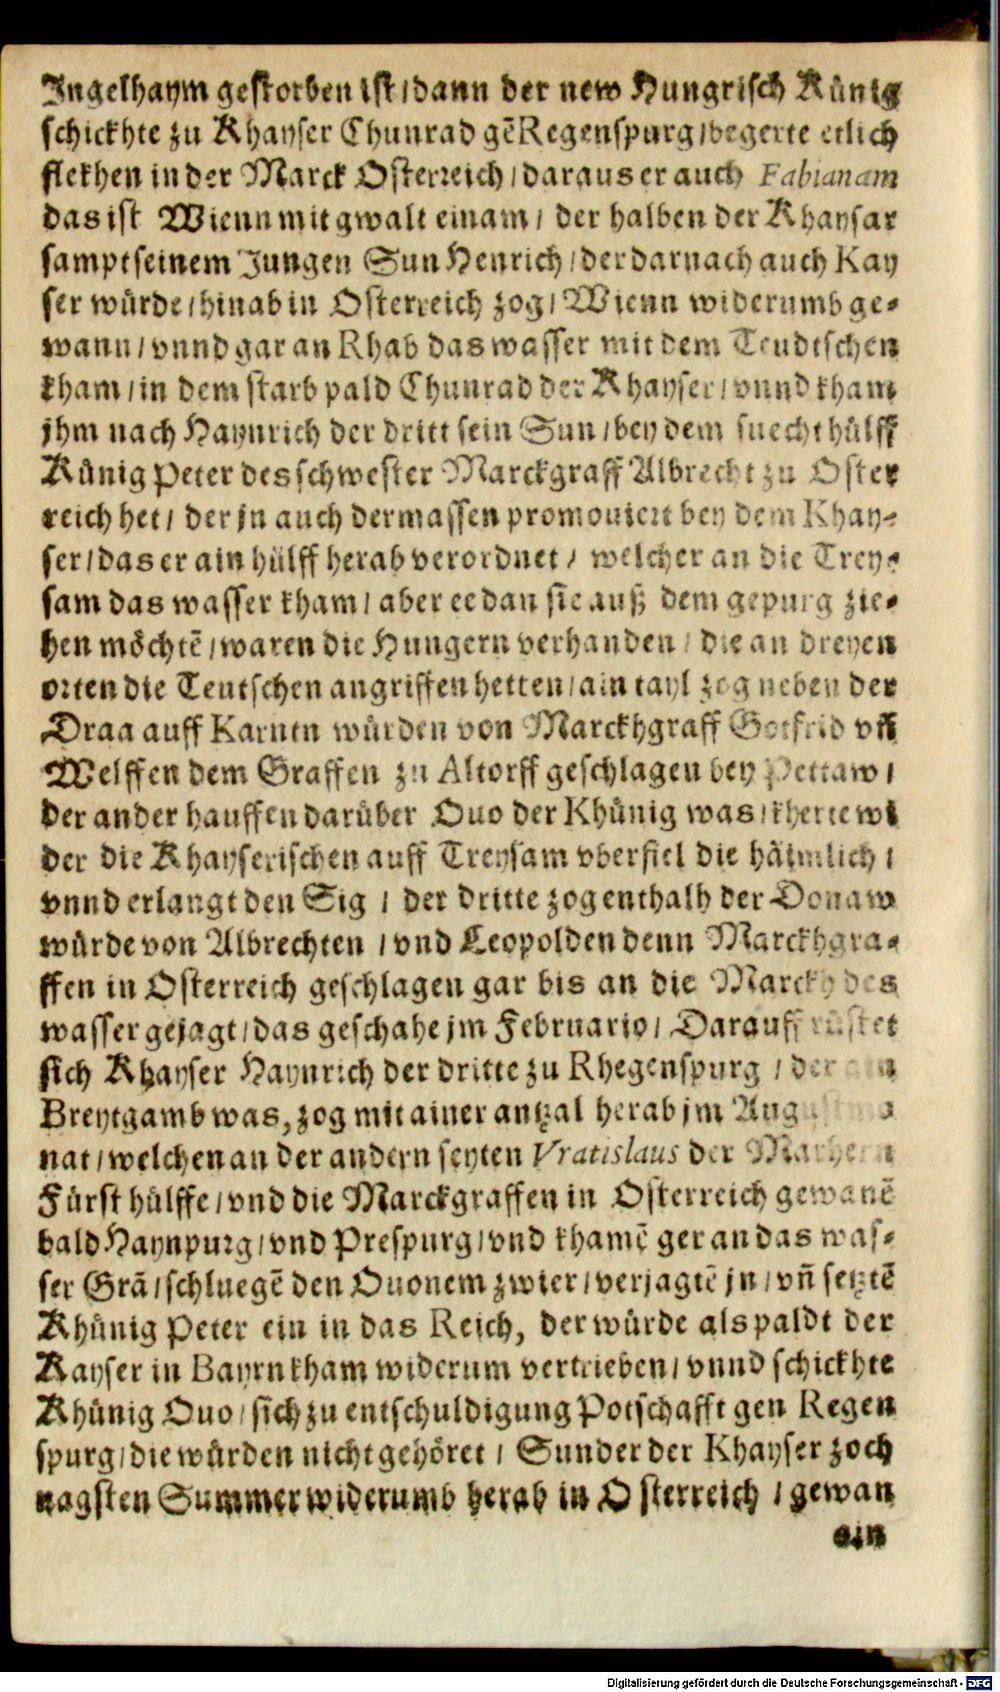 Ingelhaym gestorben ist / dann der new Hungrisch Künig
schickhte zu Khayser Chunrad gẽ Regenspurg / begerte etlich
flekhen in der Marck Osterreich / daraus er auch Fabianam
das ist Wienn mit gwalt einam / der halben der Khaysar
sampt seinem Jungen Sun Henrich / der darnach auch Kay
ser würde / hinab in Osterreich zog / Wienn widerumb ge-
wann / vnnd gar an Rhab das wasser mit dem Teudtschen
kham / in dem starb pald Chunrad der Khayser / vnnd kham
jhm nach Haynrich der dritt sein Sun / bey dem suecht hülff
Künig Peter des schwester Marckgraff Albrecht zu Oster
reich het / der jn auch dermassen promouiert bey dem Khay-
ser / das er ain hülff herab verordnet / welcher an die Trey-
sam das wasser kham / aber ee dan sie auß dem gepurg zie-
hen möchtẽ / waren die Hungern verhanden / die an dreyen
orten die Teutschen angriffen hetten / ain tayl zog neben der
Draa auff Karntn würden von Marckhgraff Gotfrid vñ
Welffen dem Graffen zu Altorff geschlagen bey Pettaw /
der ander hauffen darüber Ouo der Khünig was / kherte wi
der die Khayserischen auff Treysam vberfiel die häimlich /
vnnd erlangt den Sig / der dritte zog enthalb der Donaw
würde von Albrechten / vnd Leopolden denn Marckhgra-
ffen in Osterreich geschlagen gar bis an die Marckh des
wasser gejagt / das geschahe jm Februario / Darauff rüstet
sich Khayser Haynrich der dritte zu Rhegenspurg / der ain
Breytgamb was, zog mit ainer antzal herab jm Augustmo
nat / welchen an der andern seyten Vratislaus der Marhern
Fürst hülffe / vnd die Marckgraffen in Osterreich gewanẽ
bald Haynpurg / vnd Prespurg / vnd khamẽ ger an das was-
ser Grã / schluegẽ den Ouonem zwier / verjagtẽ jn / vñ setztẽ
Khünig Peter ein in das Reich, der würde als paldt der
Kayser in Bayrn kham widerum vertrieben / vnnd schickhte
Khünig Ouo / sich zu entschuldigung Potschafft gen Regen
spurg / die würden nicht gehöret / Sunder der Khayser zoch
nagsten Summer widerumb herab in Osterreich / gewan
ain
Digitalisierung gefördert durch die Deutsche Forschungsgemeinschaft - DFG